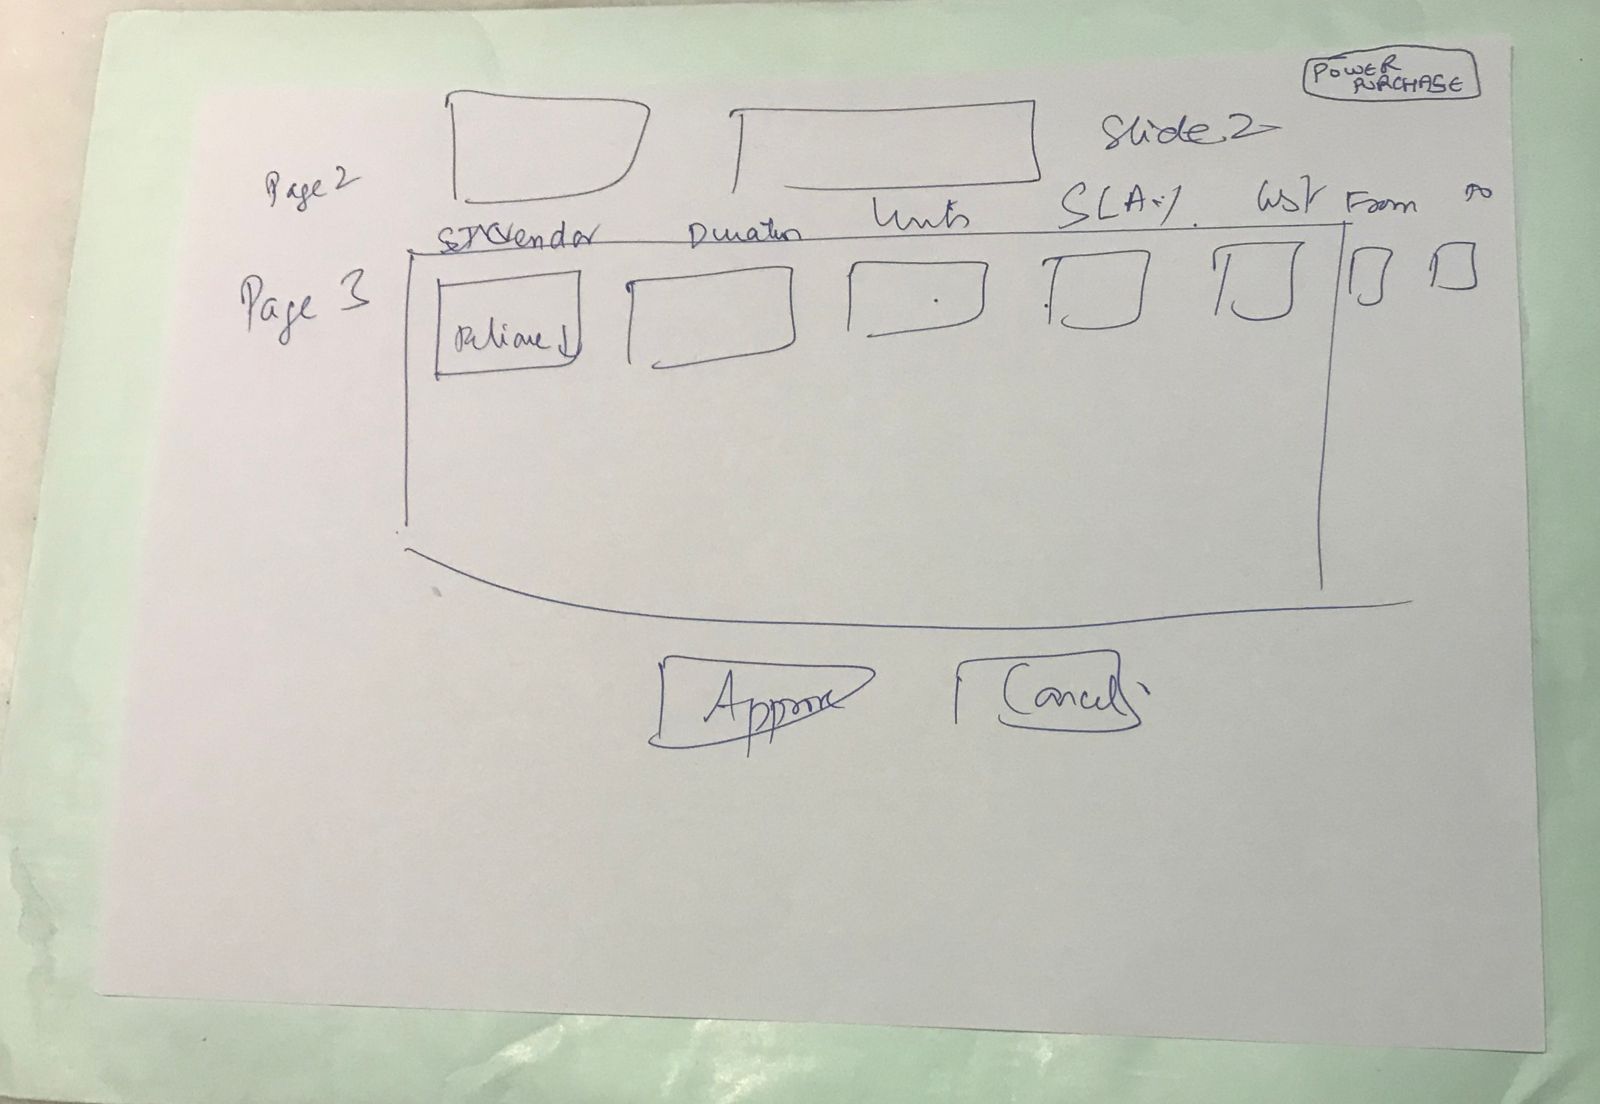 POWER
PURCHASE
Slide 2
Page 2
Vendor Duration Units SLA % Cost From To
Page 3
Reliance
Approve Cancel